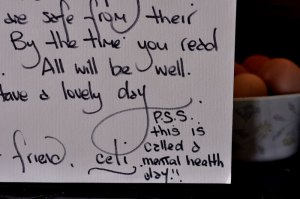 are safe from their
By the time you read
. All will be well.
Have a lovely day.
friend. celi.
P.S.S.
this is
called a
mental health
day!!